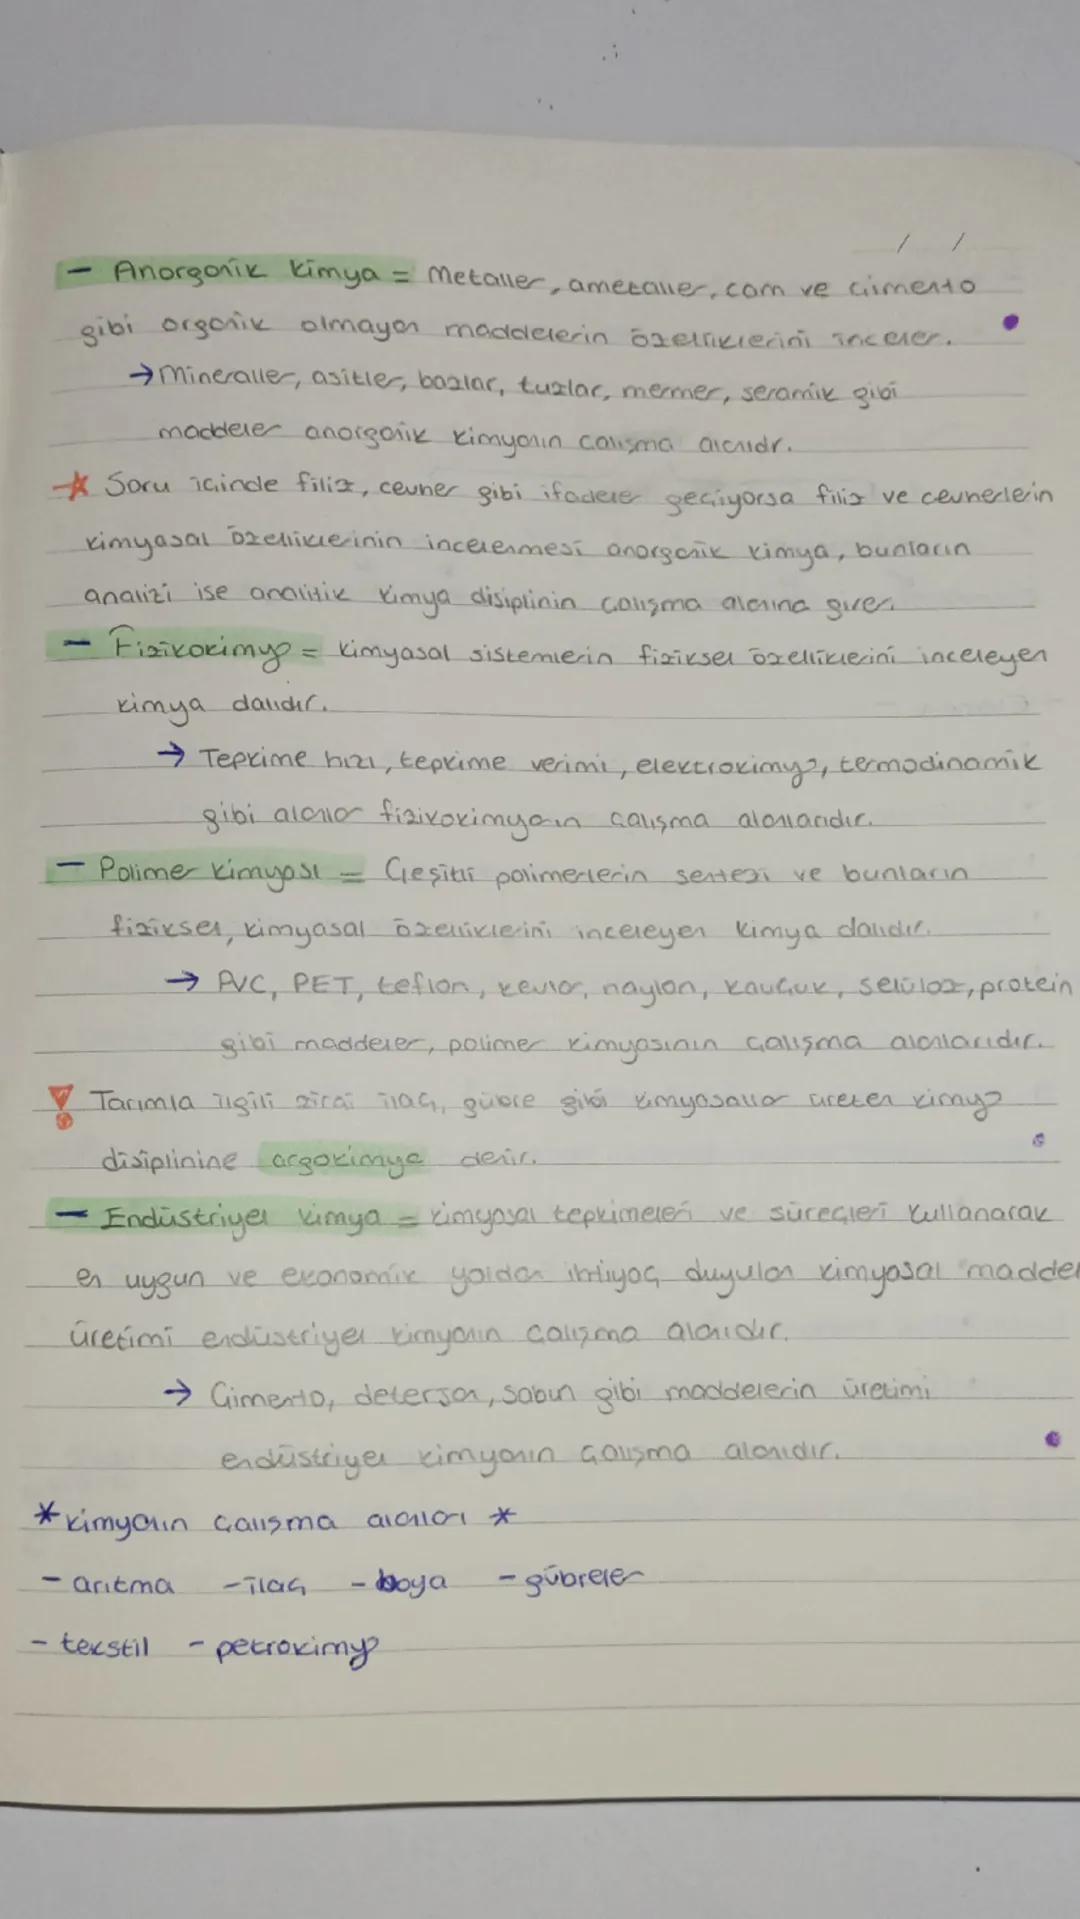 / /
- Anorganik kimya = Metaller, ametaller, cam ve çimento
gibi organik olmayan maddelerin özelliklerini inceler.
→ Mineraller, asitler, bazlar, tuzlar, mermer, seramik gibi
maddeler anorganik kimyanın çalışma alanıdır.
* Soru içinde filiz, cevher gibi ifadeler geçiyorsa filiz ve cevherlerin
kimyasal özelliklerinin incelenmesi anorganik kimya, bunların
analizi ise analitik kimya disiplinin çalışma alanına girer.
- Fizikokimya = kimyasal sistemlerin fiziksel özelliklerini inceleyen
kimya dalıdır.
→ Tepkime hızı, tepkime verimi, elektrokimya, termodinamik
gibi alanlar fizikokimyanın çalışma alanlarıdır.
- Polimer kimyası = Çeşitli polimerlerin sentezi ve bunların
fiziksel, kimyasal özelliklerini inceleyen kimya dalıdır.
→ PVC, PET, teflon, kevlar, naylon, kauçuk, selüloz, protein
gibi maddeler, polimer kimyasının çalışma alanlarıdır.
! Tarımla ilgili zirai ilaç, gübre gibi kimyasallar üreten kimya
disiplinine argokimya denir.
- Endüstriyel kimya = kimyasal tepkimeleri ve süreçleri kullanarak
en uygun ve ekonomik yoldan ihtiyaç duyulan kimyasal madde
üretimi endüstriyel kimyanın çalışma alanıdır.
→ Çimento, deterjan, sabun gibi maddelerin üretimi
endüstriyel kimyanın çalışma alanıdır.
* kimyanın çalışma alanları *
- arıtma - ilaç - boya - gübreler
- tekstil - petrokimya